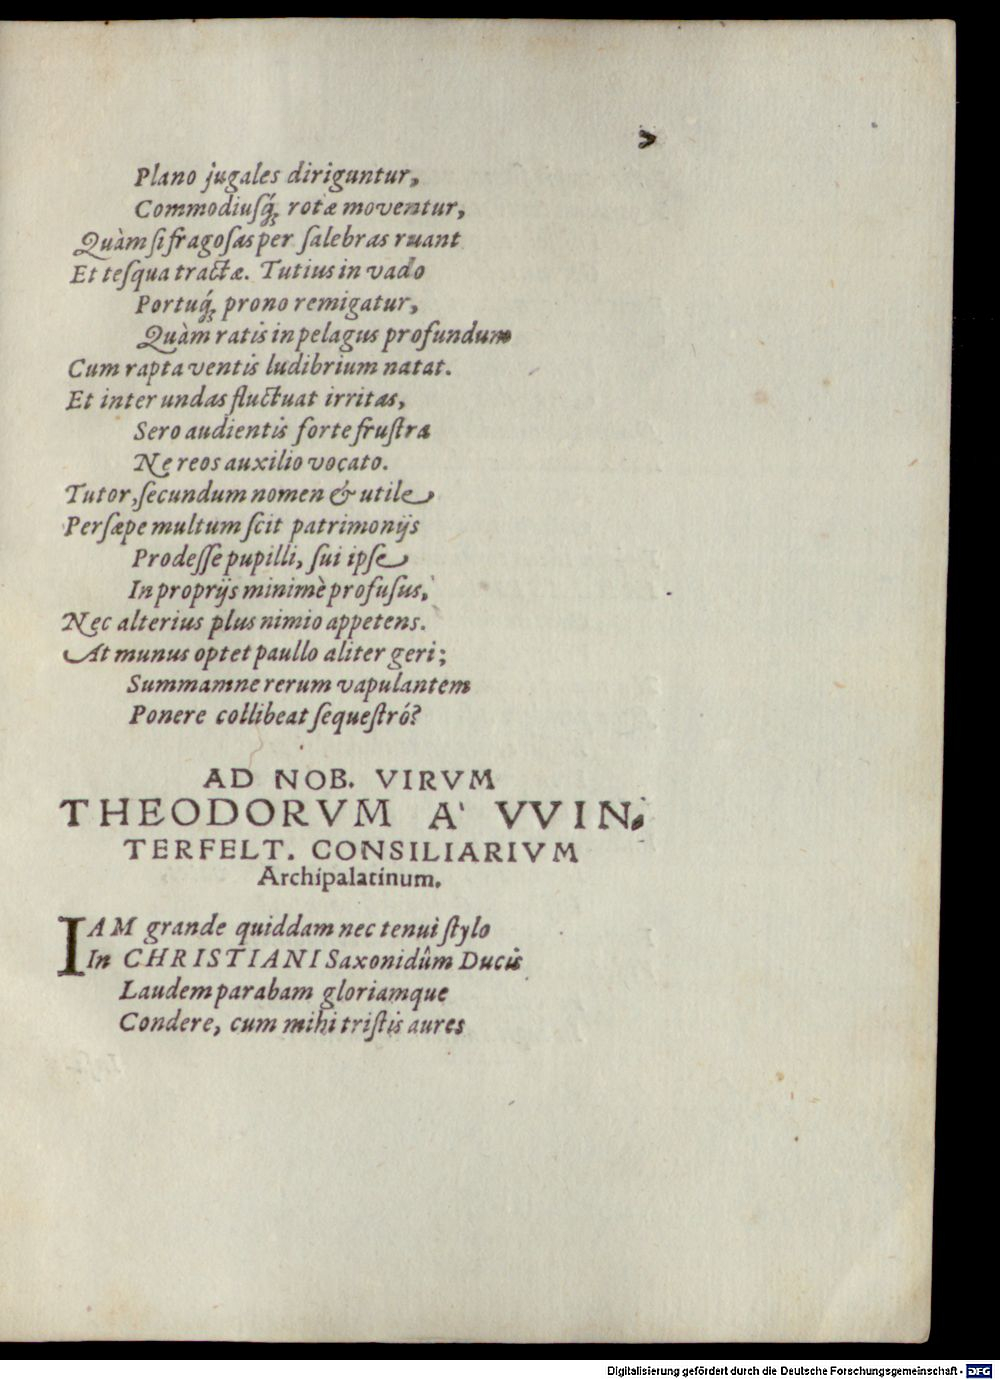 Plano jugales diriguntur,
Commodiusq́; rotæ moventur,
Quàm si fragosas per salebras ruant
Et tesqua tractæ. Tutius in vado
Portuq́; prono remigatur,
Quàm ratis in pelagus profundum
Cum rapta ventis ludibrium natat.
Et inter undas fluctuat irritas,
Sero audientis forte frustra
Nereos auxilio vocato.
Tutor, secundum nomen & utile
Persæpe multum scit patrimonijs
Prodesse pupilli, sui ipse
In proprijs minimè profusus,
Nec alterius plus nimio appetens.
At munus optet paullo aliter geri;
Summamne rerum vapulantem
Ponere collibeat sequestró?
AD NOB. VIRVM
THEODORVM A' VVIN-
TERFELT. CONSILIARIVM
Archipalatinum.
IAM grande quiddam nec tenui stylo
In CHRISTIANI Saxonidûm Ducis
Laudem parabam gloriamque
Condere, cum mihi tristis aures
Digitalisierung gefördert durch die Deutsche Forschungsgemeinschaft - DFG